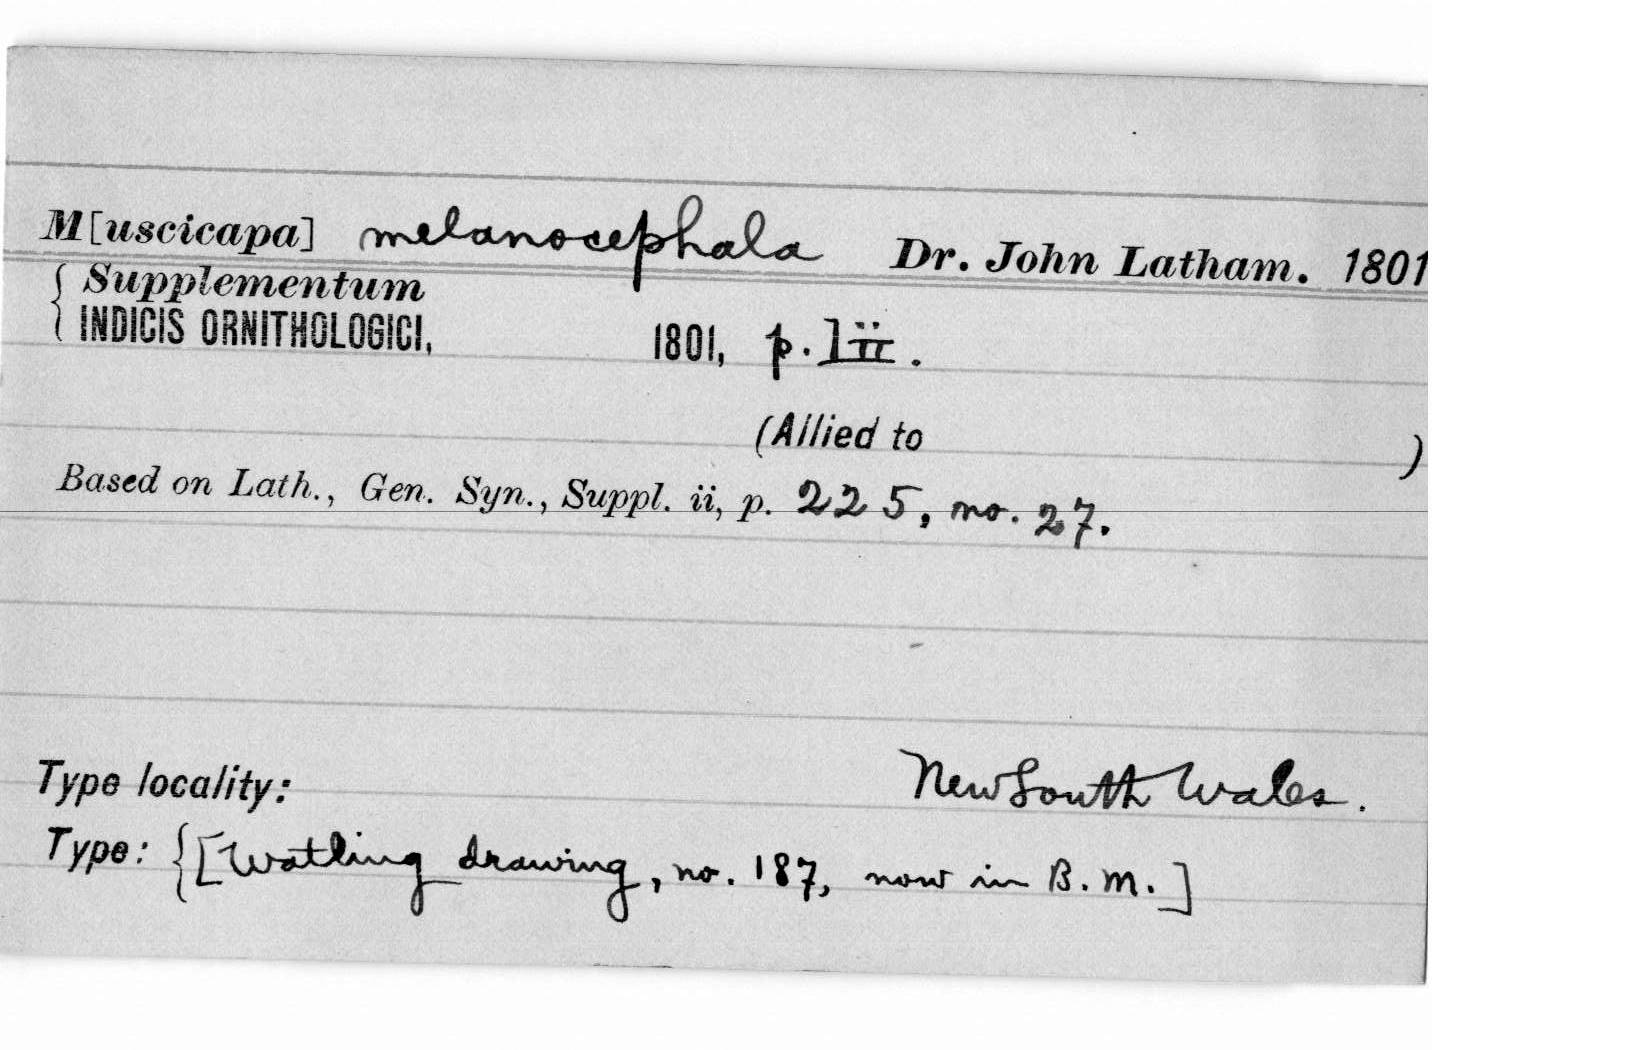 M[uscicapa] melanocephala Dr. John Latham. 1801
{ Supplementum
INDICIS ORNITHOLOGICI, 1801, p. lii.
(Allied to )
Based on Lath., Gen. Syn., Suppl. ii, p. 225, no. 27.
Type locality: New South Wales.
Type: {[Watling drawing, no. 187, now in B.M.]